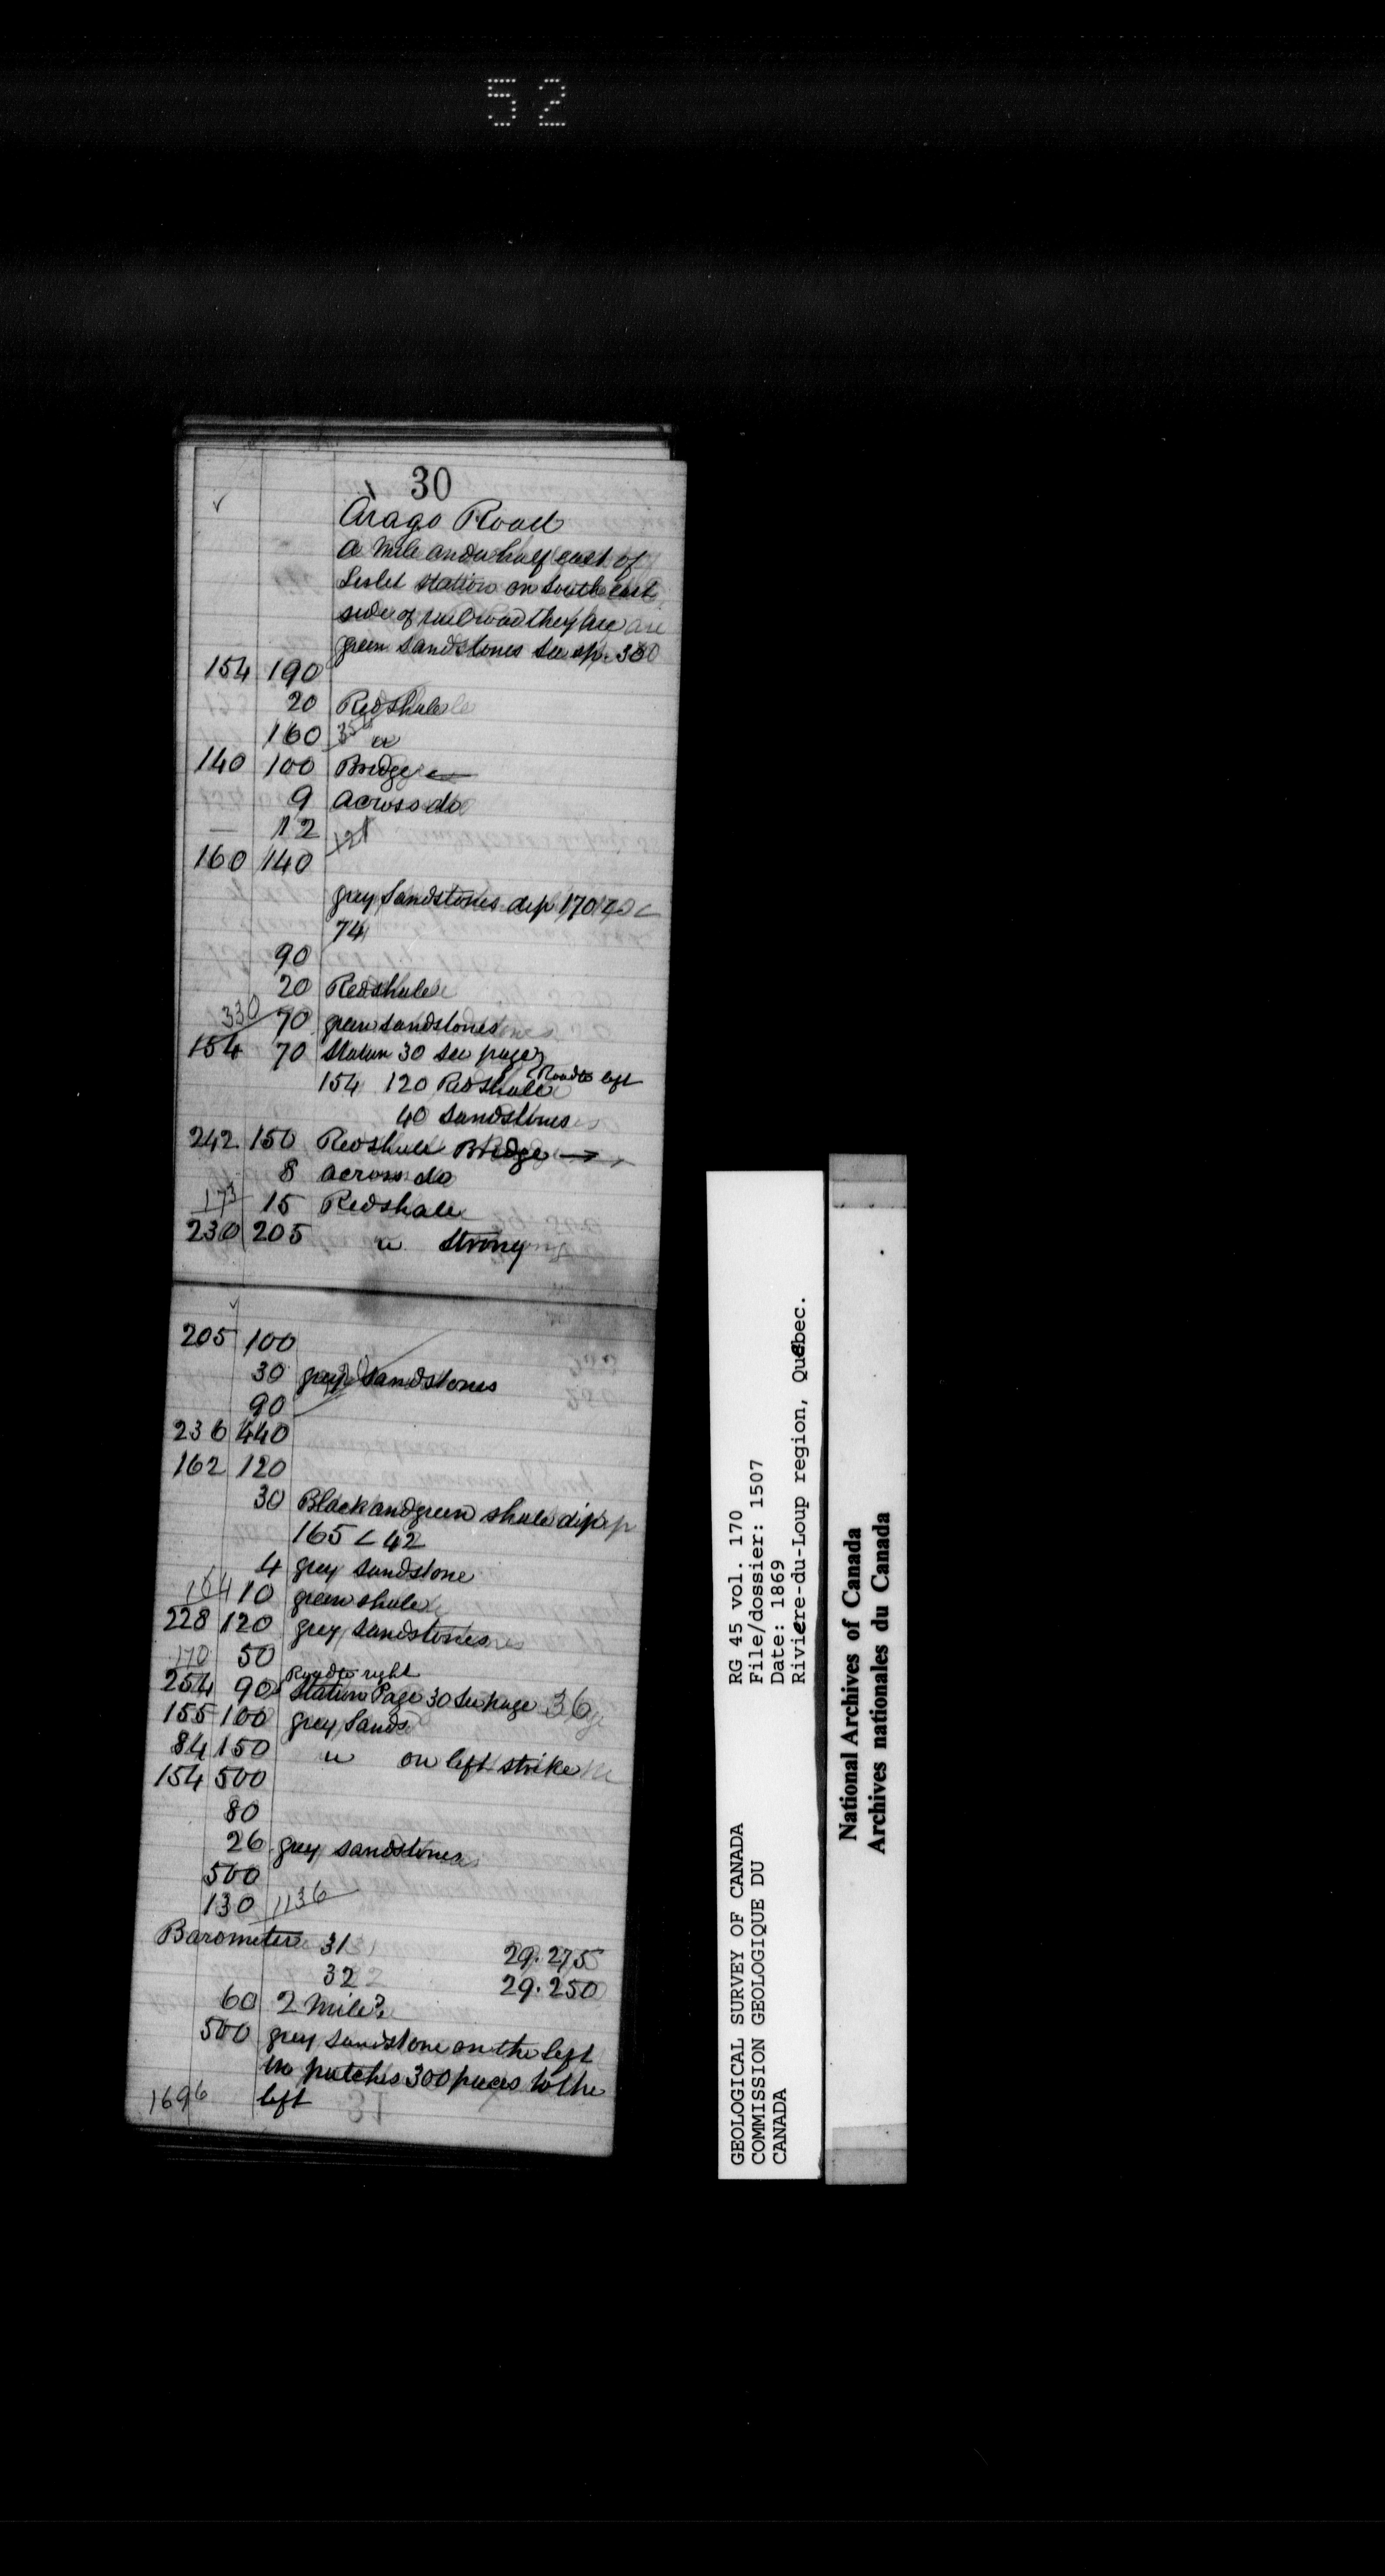 52
30
Arago Road
a mile and a half east of
Leslet station on South east
side of railroad they are
green sandstones see sp. 30
154 190
20 Red shale
160 356 "
140 100 Bridge ←
9 across do
— 12 121
160 140
grey Sandstones dip 170 <
74
90
20 Red shale
330 70 green sandstones
154 70 Station 30 see page
Road to left
154 120 Red shale
40 Sandstones
242 150 Red shale Bridge →
8 across do
173 15 Red shale
230 205 " strong
205 100
30 grey sandstones
90
236 440
162 120
30 Black and green shale dip
165 < 42
4 grey sandstone
164 10 green shale
228 120 grey sandstones
170 50
Road to right
254 90 Station Page 30 See page 36
155 100 grey Sands
84 150 " on left strike
154 500
80
26 grey sandstones
500
130 1136
Barometer 31 29.275
32 29.250
60 2 Mile
500 grey sandstone on the left
in patches 300 paces to the
1696 left
GEOLOGICAL SURVEY OF CANADA
COMMISSION GEOLOGIQUE DU
CANADA
RG 45 vol. 170
File/dossier: 1507
Date: 1869
Rivière-du-Loup region, Québec.
National Archives of Canada
Archives nationales du Canada